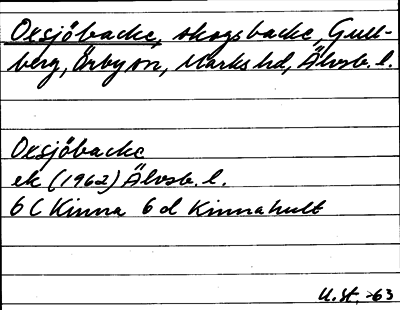 Oxsjöbacke, skogsbacke, Gull-
berg, Örby sn, Marks hd, Älvsb. l.
Oxsjöbacke
ek (1962) Älvsb. l.
6 C Kinna 6 d Kinnahult
U.St. -63